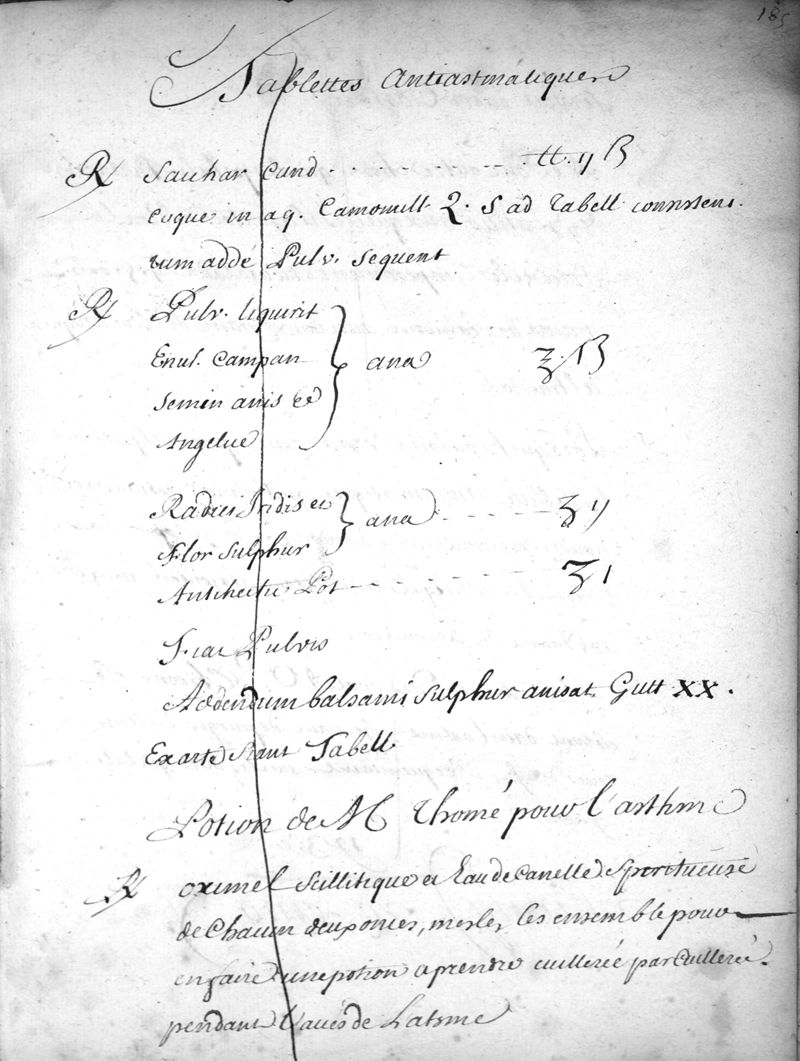 185
Tablettes Antiastmatiques
℞ Sachar Cand. . . . . . ℔. ij ß
Coque in aq. Camomill. Q. S ad Tabell consisten.
tiam addé Pulv. sequent
℞ Pulv. liquirit
Enul. Campan
Semin anis et } ana ʒ ß
Angelice
Radici Iridis et
Flor Sulphur } ana . . . . ʒ ij
Antihectic Pot — . . . ʒ i
Fiat Pulvis
Addendum balsami Sulphur anisat. Gutt XX.
Ex arte fiant Tabell
Potion de M Thomé pour l'asthme
℞ oximel Scillitique et Eau de Canelle Spiritueuse
de Chacun deux onces, mesler les ensemble pour
en faire une potion a prendre cuillerée par Cuillerée.
pendant l'accés de Latsme